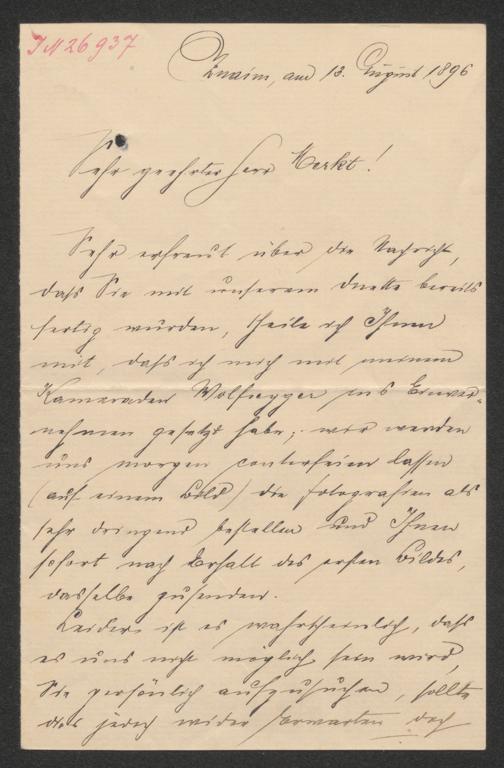 IN 26937
Znaim, am 13. August 1896
Sehr geehrter Herr Merkt!
Sehr erfreut über die Nachricht,
daß Sie mit unserem Duette bereits
fertig wurden, theile ich Ihnen
mit, daß ich mich mit meinem
Kameraden Wolfsegger ins Einver-
nehmen gesetzt habe; wir werden
uns morgen conterfeien lassen
(auf einem Bild) die Fotografien als
sehr dringend bestellen und Ihnen
sofort nach Erhalt des ersten Bildes,
dasselbe zusenden.
Leider ist es wahrscheinlich, daß
es uns nicht möglich sein wird,
Sie persönlich aufzusuchen, sollte
dies jedoch wider Erwarten doch